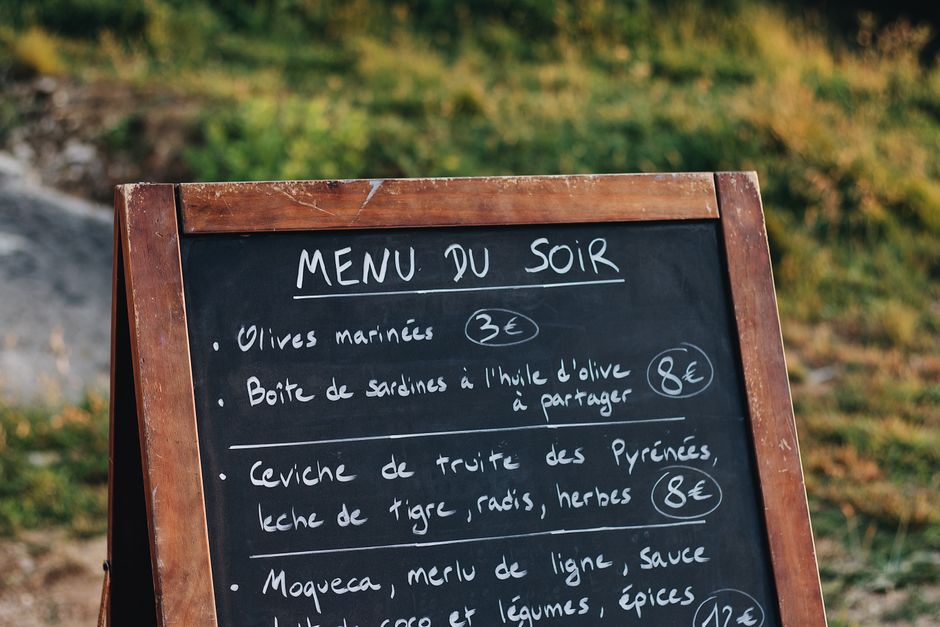 MENU DU SOIR
• Olives marinées 3€
• Boîte de sardines à l'huile d'olive
à partager 8€
• Ceviche de truite des Pyrénées,
leche de tigre, radis, herbes 8€
• Moqueca, merlu de ligne, sauce
lait de coco et légumes, épices 12€